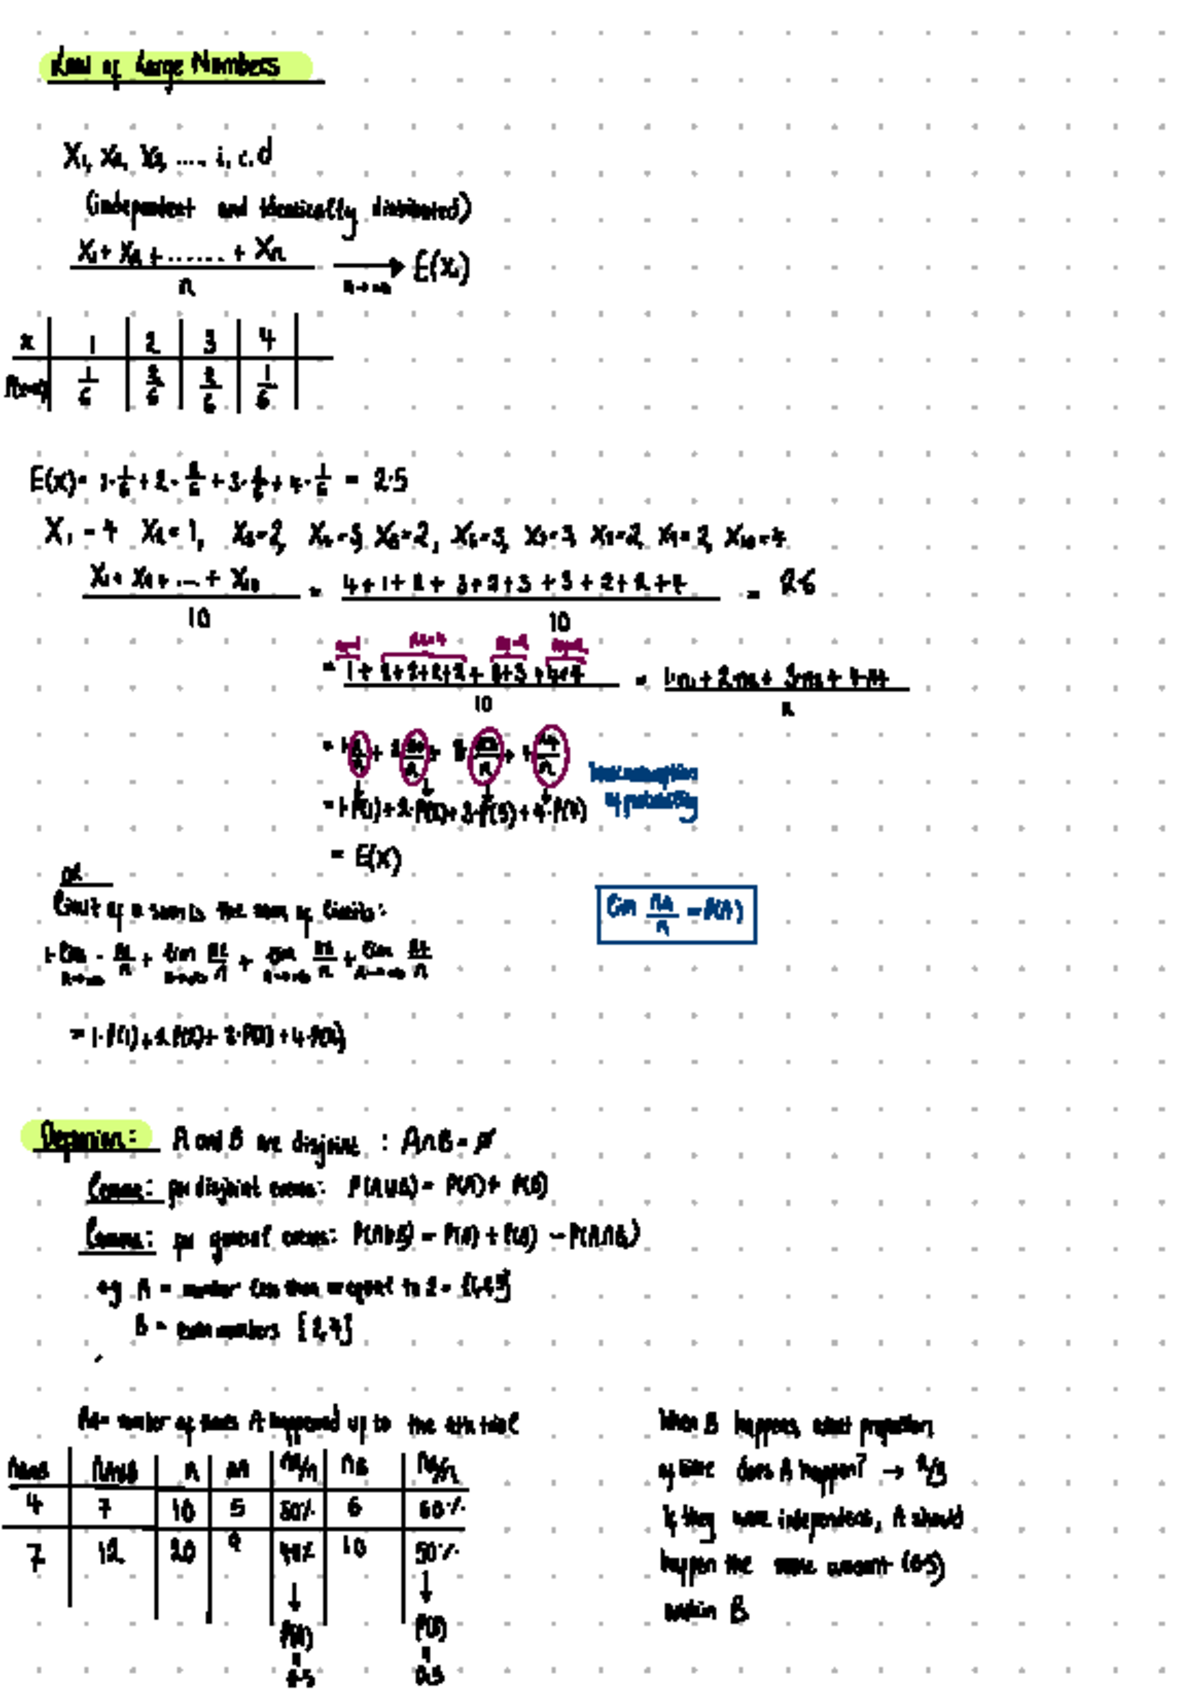 Law of Large Numbers
X₁, X₂, X₃, .... i, i, d
(independent and identically distributed)
X₁ + X₂ + ...... + Xn / n → E(X₁)
n→∞
x | 1 | 2 | 3 | 4
P(X=x) | 1/6 | 2/6 | 2/6 | 1/6
E(X) = 1·1/6 + 2·2/6 + 3·2/6 + 4·1/6 = 2.5
X₁ = 4 X₂ = 1, X₃ = 2, X₄ = 3, X₅ = 2, X₆ = 3, X₇ = 3, X₈ = 2, X₉ = 2, X₁₀ = 4
X₁ + X₂ + ... + X₁₀ / 10 = 4+1+2+3+2+3+3+2+2+4 / 10 = 2.6
n₂=4
= 1+2+2+2+2+3+3+4+4 / 10 = 1·n₁ + 2·n₂ + 3·n₃ + 4·n₄ / n
= 1 n₁/n + 2 n₂/n + 3 n₃/n + 4 n₄/n
of probability
= 1·P(1) + 2·P(2) + 3·P(3) + 4·P(4)
= E(X)
OR
Limit of a sum is the sum of limits:
lim nA/n = P(A)
1·lim n₁/n + lim n₂/n + lim n₃/n + lim n₄/n
n→∞ n→∞ n→∞ n→∞
= 1·P(1) + 2·P(2) + 3·P(3) + 4·P(4)
A and B are disjoint : A∩B = ∅
Lemma: for disjoint events: P(A∪B) = P(A) + P(B)
Lemma: for general events: P(A∪B) = P(A) + P(B) - P(A∩B)
eg A = number less than or equal to 2 = {1,2}
B = even numbers {2,4}
nA = number of times A happened up to the nth trial
nA∩B | nA∪B | n | nA | nA/n | nB | nB/n
4 | 7 | 10 | 5 | 50% | 6 | 60%
7 | 12 | 20 | 9 | 45% | 10 | 50%
↓ ↓
P(A) P(B)
= =
0.5 0.5
When B happens, what proportion
of time does A happen? → 2/3
If they were independent, A should
happen the same amount (0.5)
within B